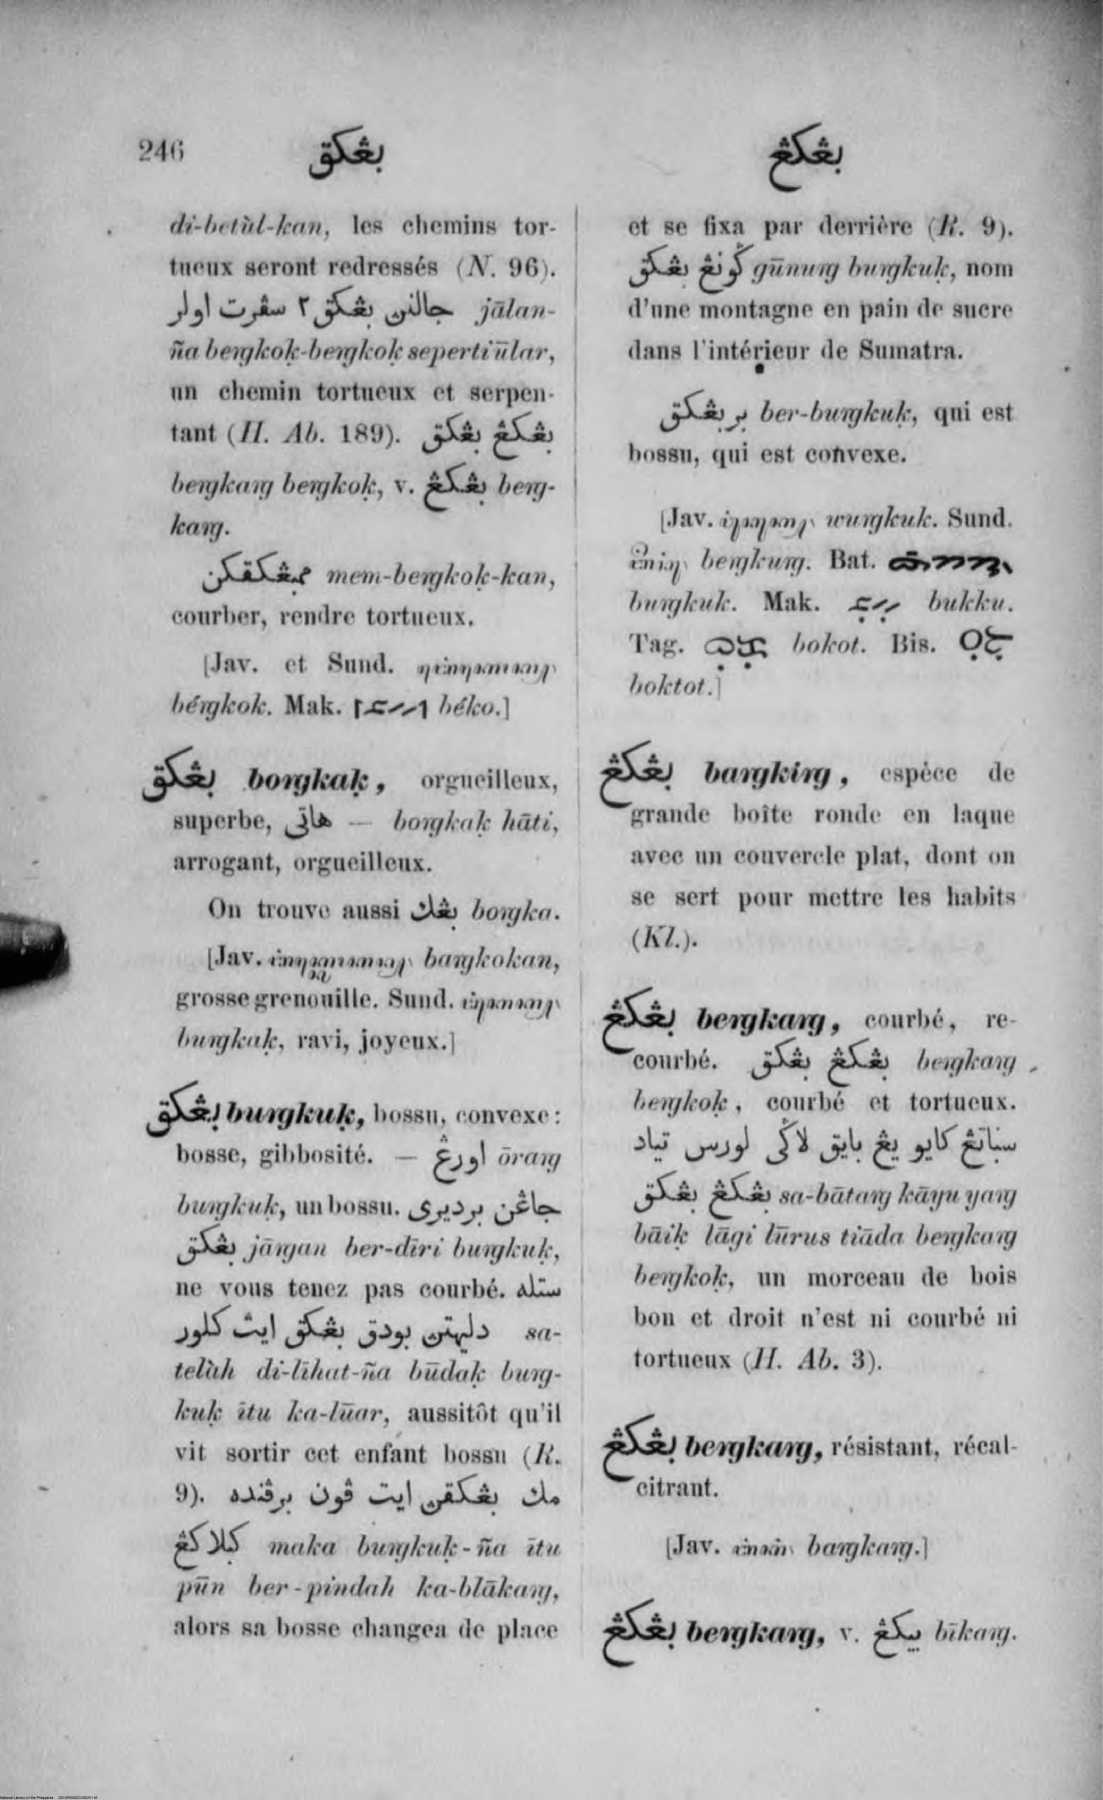 246
بڠكق
بڠكڠ
di-betùl-kan, les chemins tor-
tueux seront redressés (N. 96).
جالنڽ بڠكق٢ سڤرت اولر jālan-
ña beŋkoḳ-beŋkoḳ seperti ūlar,
un chemin tortueux et serpen-
tant (H. Ab. 189). بڠكڠ بڠكق
beŋkaŋ beŋkoḳ, v. بڠكڠ beŋ-
kaŋ.
ممبڠكقكن mem-beŋkoḳ-kan,
courber, rendre tortueux.
[Jav. et Sund.
béŋkok. Mak. béko.]
بڠكق boŋkaḳ, orgueilleux,
superbe, هاتى — boŋkaḳ hāti,
arrogant, orgueilleux.
On trouve aussi بڠك boŋka.
[Jav. baŋkokan,
grosse grenouille. Sund.
buŋkaḳ, ravi, joyeux.]
بڠكق buŋkuḳ, bossu, convexe:
bosse, gibbosité. — اورڠ ōraŋ
buŋkuḳ, un bossu. جاڠن برديرى
بڠكق jāŋan ber-dīri buŋkuḳ,
ne vous tenez pas courbé. ستله
دليهتڽ بودق بڠكق ايت كلور sa-
telàh di-līhat-ña būdaḳ buŋ-
kuḳ ītu ka-lūar, aussitôt qu'il
vit sortir cet enfant bossu (R.
9). مك بڠكقڽ ايت ڤون برڤنده
كبلاكڠ maka buŋkuḳ-ña ītu
pūn ber-pindah ka-blākaŋ,
alors sa bosse changea de place
et se fixa par derrière (R. 9).
ڬونڠ بڠكق gūnuŋ buŋkuḳ, nom
d'une montagne en pain de sucre
dans l'intérieur de Sumatra.
بربڠكق ber-buŋkuḳ, qui est
bossu, qui est convexe.
[Jav. wuŋkuk. Sund.
beŋkuŋ. Bat.
buŋkuk. Mak. bukku.
Tag. bokot. Bis.
boktot.]
بڠكڠ baŋkiŋ, espèce de
grande boîte ronde en laque
avec un couvercle plat, dont on
se sert pour mettre les habits
(Kl.).
بڠكڠ beŋkaŋ, courbé, re-
courbé. بڠكڠ بڠكق beŋkaŋ
beŋkoḳ, courbé et tortueux.
سباتڠ كايو يڠ بايق لاڬى لورس تياد
بڠكڠ بڠكق sa-bātaŋ kāyu yaŋ
bāiḳ lāgi lūrus tiāda beŋkaŋ
beŋkoḳ, un morceau de bois
bon et droit n'est ni courbé ni
tortueux (H. Ab. 3).
بڠكڠ beŋkaŋ, résistant, récal-
citrant.
[Jav. baŋkaŋ.]
بڠكڠ beŋkaŋ, v. بيكڠ bīkaŋ.